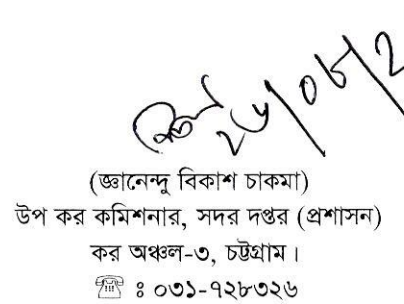 ২৮/০৮/২
(জ্ঞানেন্দু বিকাশ চাকমা)
উপ কর কমিশনার, সদর দপ্তর (প্রশাসন)
কর অঞ্চল-৩, চট্টগ্রাম।
☏ ঃ ০৩১-৭২৮৩২৬